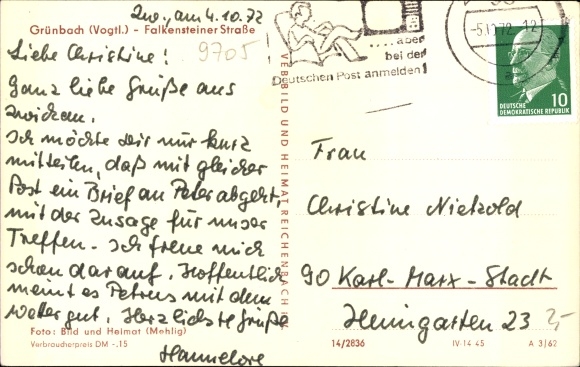 Zw., am 4.10.72
Grünbach (Vogtl.) - Falkensteiner Straße
9705
Liebe Christine!
Ganz liebe Grüße aus
Zwickau.
Ich möchte Dir nur kurz
mitteilen, daß mit gleicher
Post ein Brief an Peter abgeht,
mit der Zusage für unser
Treffen. Ich freue mich
schon darauf. Hoffentlich
meint es Petrus mit dem
Wetter gut. Herzlichste Grüße
Hannelore
Foto: Bild und Heimat (Mehlig)
Verbraucherpreis DM -,15
VEB BILD UND HEIMAT REICHENBACH i.V.
.....aber
bei der
Deutschen Post anmelden!
-5.10.72.-12
DEUTSCHE
DEMOKRATISCHE REPUBLIK
10
Frau
Christine Nietzold
90 Karl-Marx-Stadt
Heimgarten 23
14/2836 IV-14-45 A 3/62